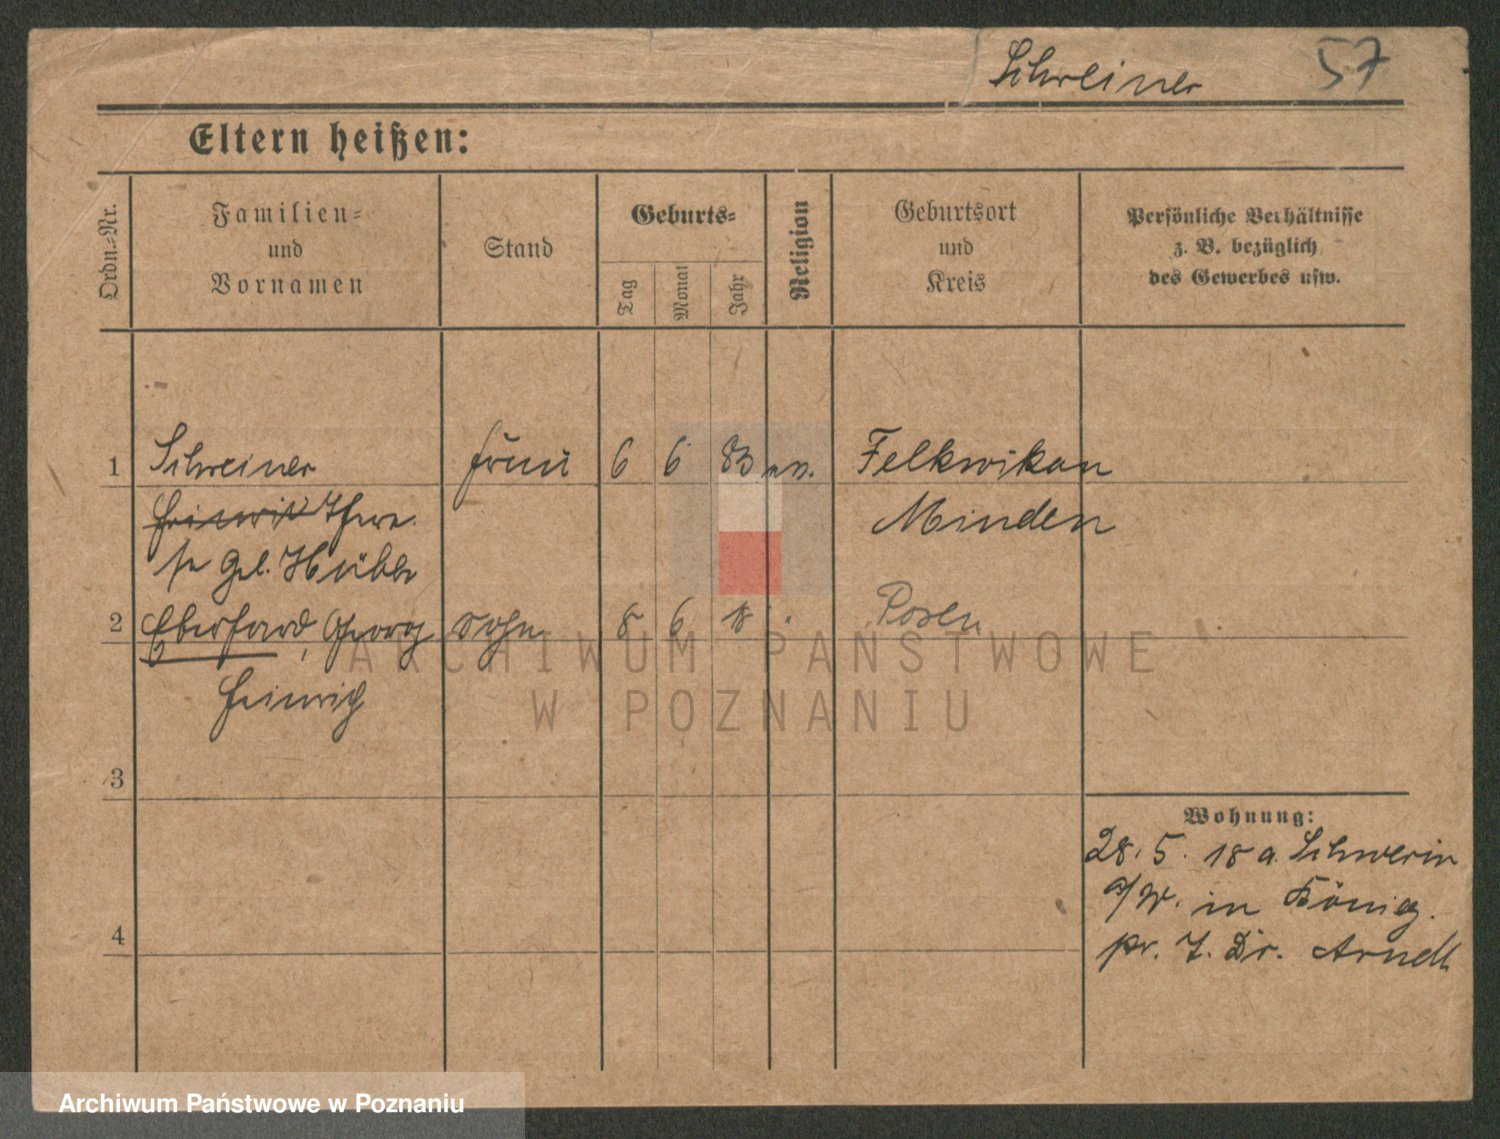 Schreiner 57
Eltern heißen:
Ordn.-Nr.
Familien-
und
Vornamen
Stand
Geburts-
Tag
Monat
Jahr
Religion
Geburtsort
und
Kreis
Persönliche Verhältnisse
z. B. bezüglich
des Gewerbes usw.
1 Schreiner Frau 6 6 83 ev.
Minden
se geb.
2 Eberhard, Georg Sohn 8 6 18 Posen
Heinrich
3
4
Wohnung:
28. 5. 18 a. Schwerin
a/W. in König.
pr. J. Dir. Arndt
ARCHIWUM PAŃSTWOWE
W POZNANIU
Archiwum Państwowe w Poznaniu